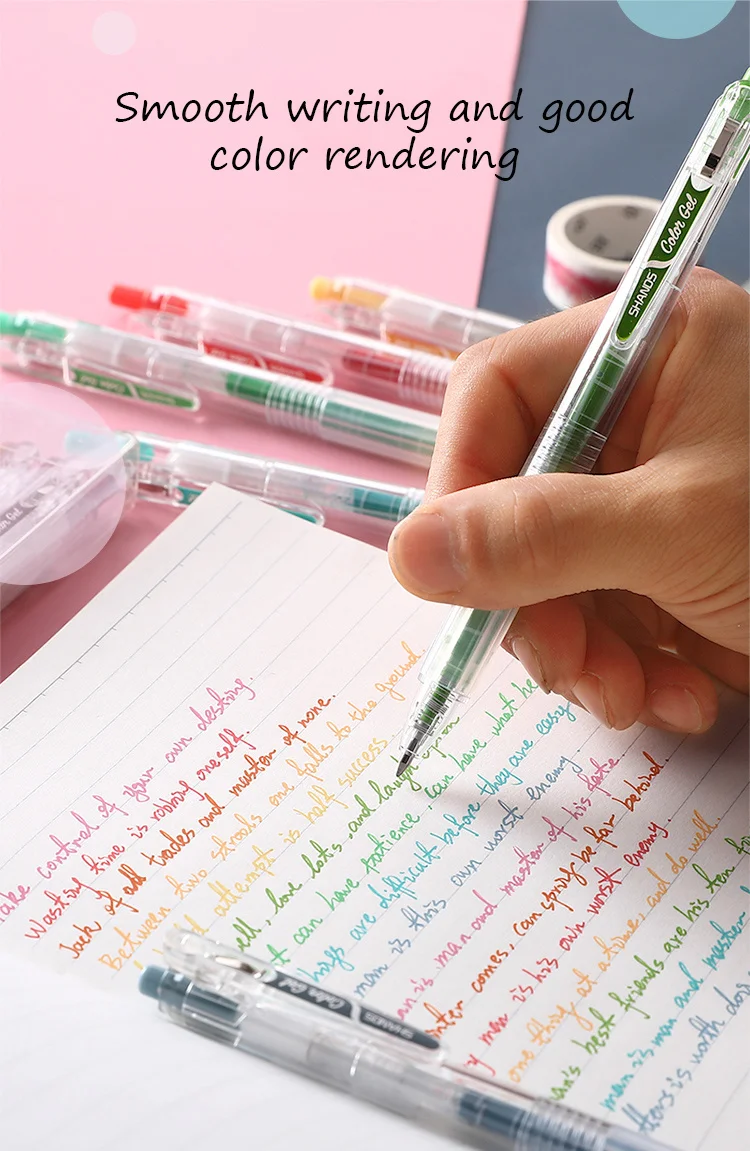 Smooth writing and good
color rendering
Color Gel
SHANDS
ake control of your own destiny.
Wasting time is robbing oneself.
Jack of all trades and master of none.
Between two strools one falls to the ground.
attempt is half success.
ell, love lots, and laugh
t can have patience, can have what he
hings are difficult before they are easy
man is this own worst enemy.
an is man and master of his fate
inter comes, can spring be far behind.
y man is his own worst enemy.
one thing at a time, and do well.
an's best friends are his ten
man is man and master
is worth doi
Color Gel
SHANDS